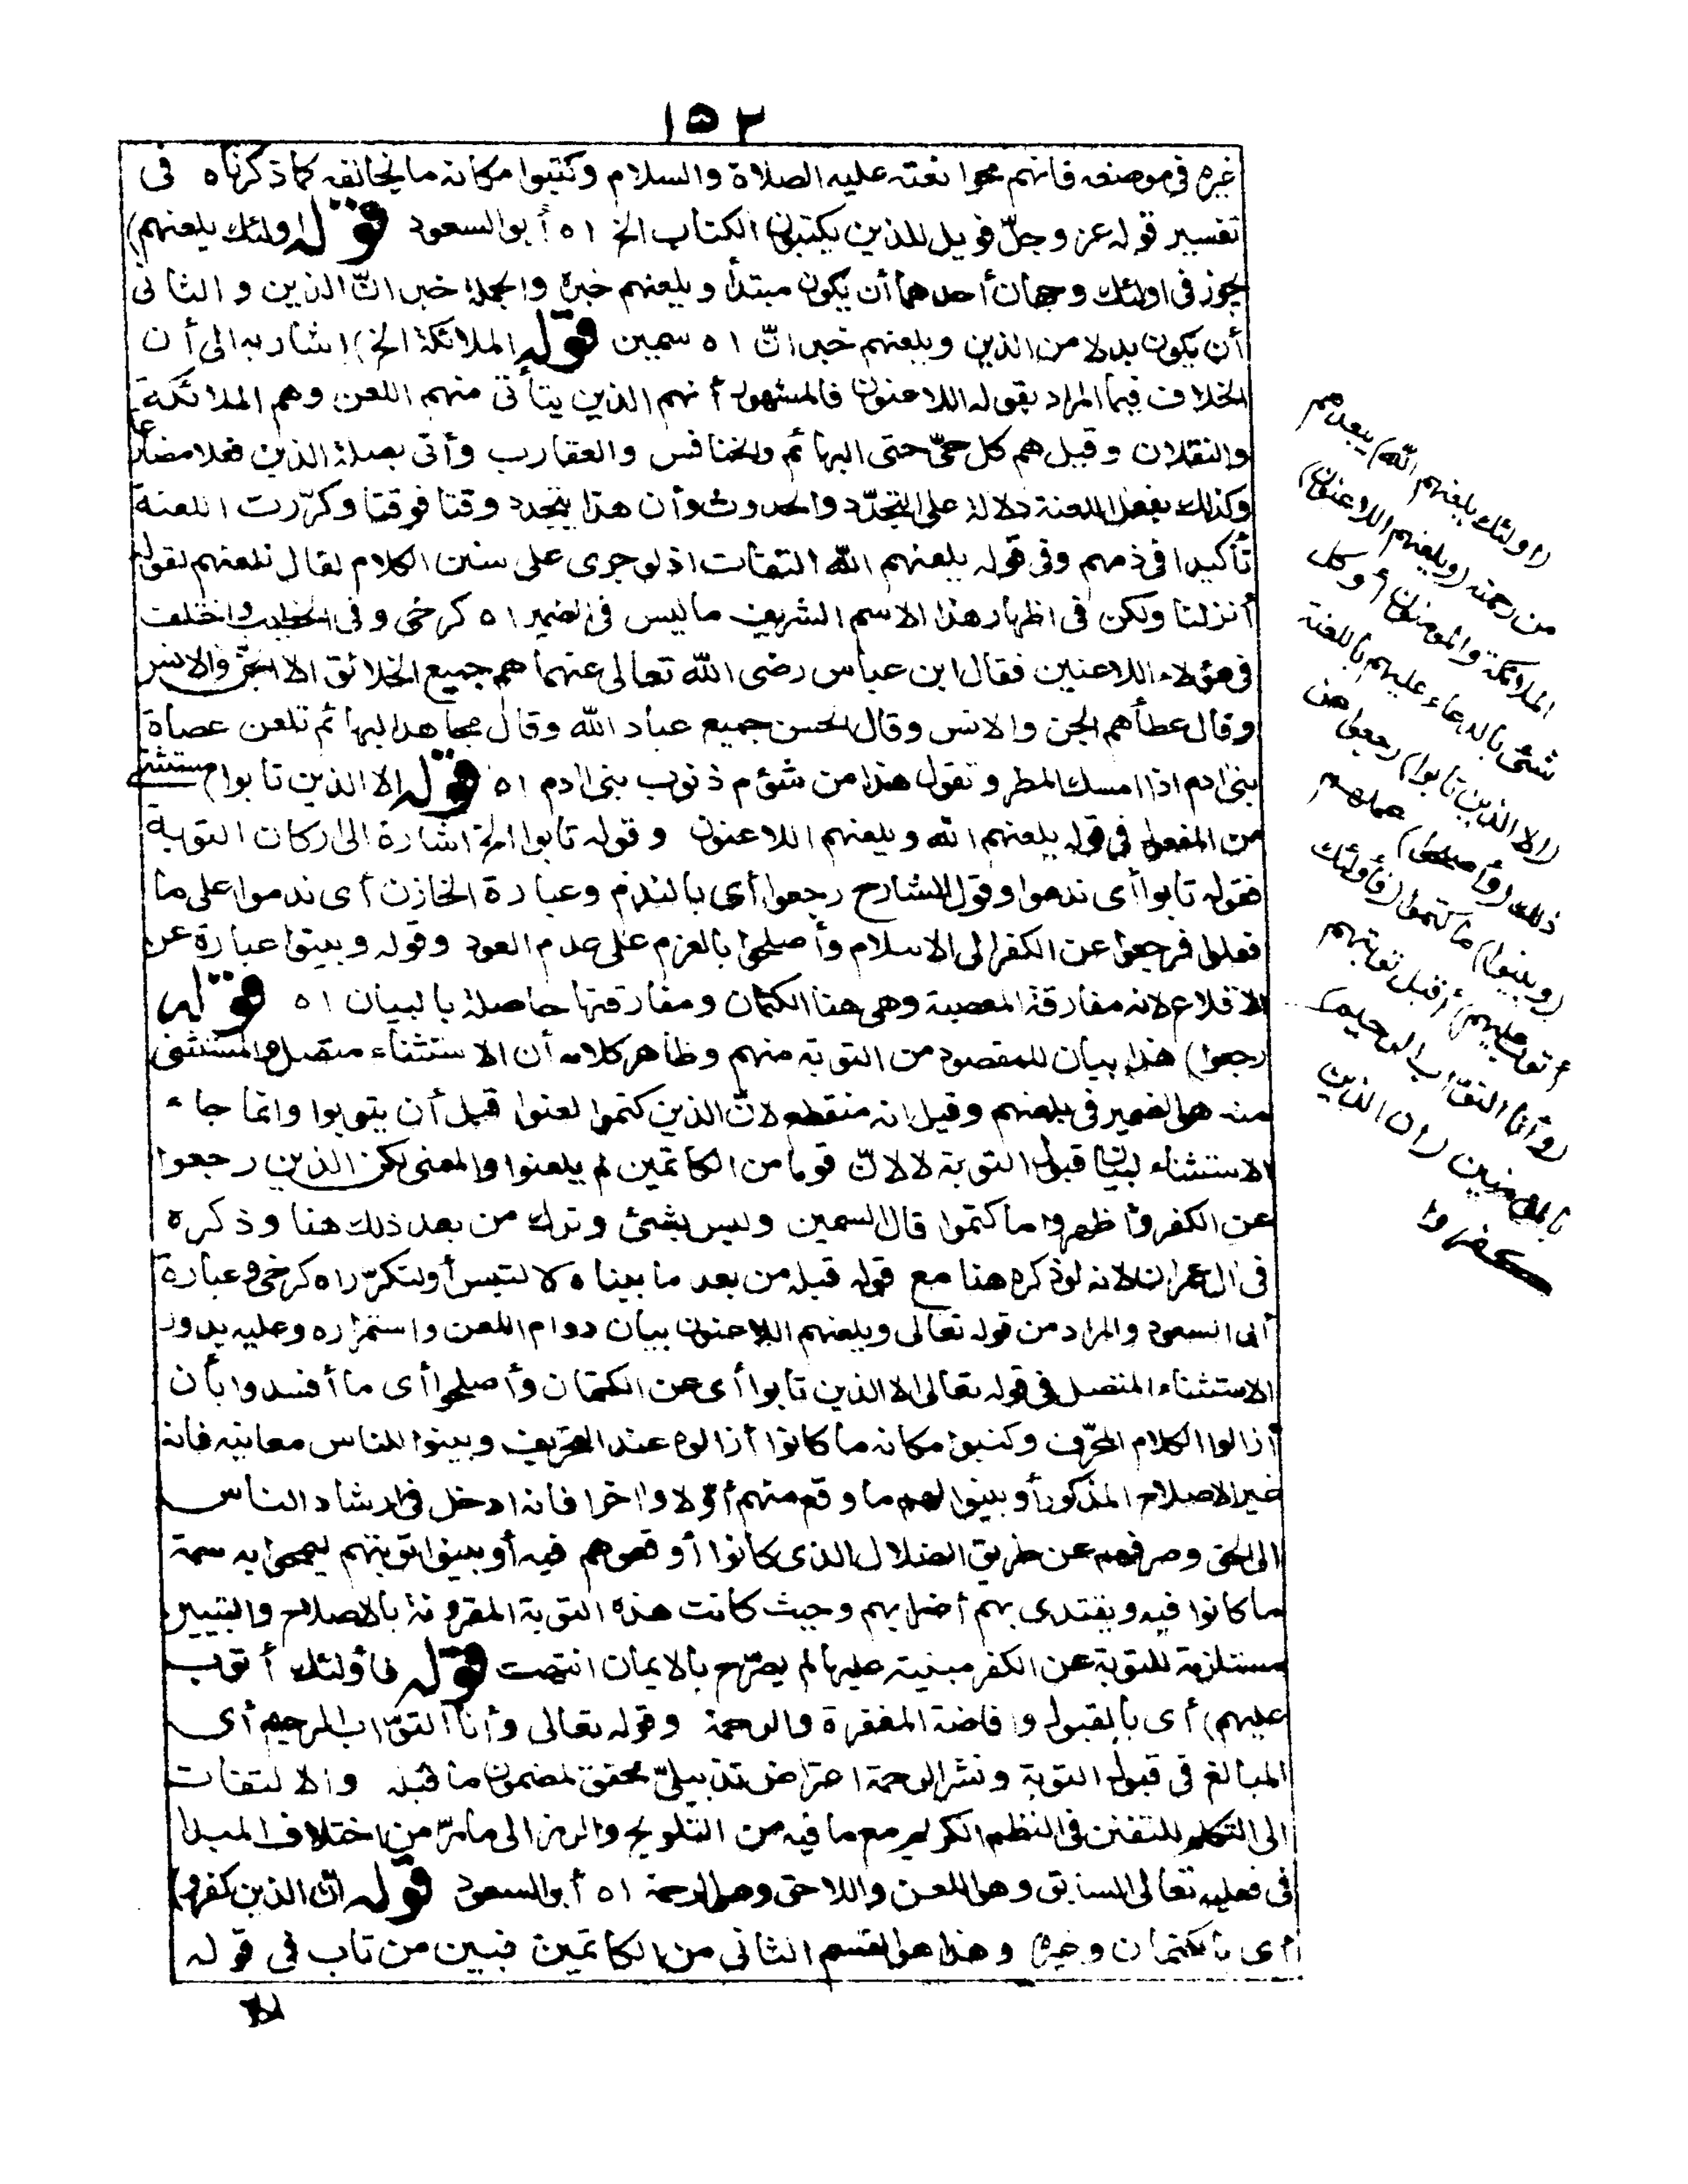 ١٥٢
غيره فى موضعه فانهم محوا نعته عليه الصلاة والسلام وكتبوا مكانه ما يخالفه كما ذكرناه فى
تفسير قوله عز وجلّ فويل للذين يكتبون الكتاب الخ اه أبو السعود قوله اولئك يلعنهم)
يجوز فى اولئك وجهان أحدهما أن يكون مبتدأ ويلعنهم خبره والجملة خبر انّ الذين والثانى
أن يكون بدلا من الذين ويلعنهم خبر انّ اه سمين قوله الملائكة الخ) اشار به الى أن
الخلاف فيما المراد بقوله اللاعنون فالمشهور أنهم الذين يتأتى منهم اللعن وهم الملائكة
والثقلان وقيل هم كل حىّ حتى البهائم والخنافس والعقارب وأتى بصلة الذين فعلا مضارعا
وكذلك بفعل اللعنة دلالة على التجدّد والحدوث وأن هذا يتجدد وقتا فوقتا وكرّرت اللعنة
تأكيدا فى ذمهم وفى قوله يلعنهم الله التفات اذ لو جرى على سنن الكلام لقال نلعنهم لقوله
أنزلنا ولكن فى اظهار هذا الاسم الشريف ما ليس فى الضمير اه كرخى وفى الخطيب واختلف
فى هؤلاء اللاعنين فقال ابن عباس رضى الله تعالى عنهما هم جميع الخلائق الا الجنّ والانس
وقال عطأ هم الجن والانس وقال الحسن جميع عباد الله وقال مجاهد البهائم تلعن عصاة
بنى ادم اذا امسك المطر وتقول هذا من شؤم ذنوب بنى ادم اه قوله الا الذين تابوا) مستثنى
من المفعول فى قوله يلعنهم الله ويلعنهم اللاعنون وقوله تابوا الخ اشارة الى اركان التوبة
فقوله تابوا أى ندموا وقول الشارح رجعوا أى بالندم وعبارة الخازن أى ندموا على ما
فعلوا فرجعوا عن الكفر الى الاسلام وأصلحوا بالعزم على عدم العود وقوله وبينوا عبارة عن
الاقلاع لانه مفارقة المعصية وهى هنا الكتمان ومفارقتها حاصلة بالبيان اه قوله
رجعوا) هذا بيان للمقصود من التوبة منهم وظاهر كلامه أن الاستثناء متصل والمستثنى
منه هو الضمير فى يلعنهم وقيل انه منقطع لانّ الذين كتموا لعنوا قبل أن يتوبوا وانما جاء
الاستثناء لبيان قبول التوبة لا لانّ قوما من الكاتمين لم يلعنوا والمعنى لكن الذين رجعوا
عن الكفر وأظهروا ما كتموا قال السمين وليس بشئ وترك من بعد ذلك هنا وذكره
فى ال عمران لانه لو ذكره هنا مع قوله قبله من بعد ما بيناه لالتبس أو لتكرّر اه كرخى وعبارة
أبى السعود والمراد من قوله تعالى ويلعنهم اللاعنون بيان دوام اللعن واستمراره وعليه يدور
الاستثناء المتصل فى قوله تعالى الا الذين تابوا أى عن الكتمان وأصلحوا أى ما أفسدوا بأن
أزالوا الكلام المحرّف وكتبوا مكانه ما كانوا أزالوه عند التحريف وبينوا للناس معانيه فانه
غير الاصلاح المذكور أو بينوا لهم ما وقع منهم أوّلا واخرا فانه ادخل فى ارشاد الناس
الى الحق وصرفهم عن طريق الضلال الذى كانوا أوقعوهم فيه أو بينوا توبتهم ليمحوا به سمة
ما كانوا فيه ويقتدى بهم أضرابهم وحيث كانت هذه التوبة المقرونة بالاصلاح والتبيين
مستلزمة للتوبة عن الكفر مبنية عليها لم يصرّح بالايمان انتهت قوله فأولئك أتوب
عليهم) أى بالقبول وافاضة المغفرة والرحمة وقوله تعالى وأنا التوّاب الرحيم أى
المبالغ فى قبول التوبة ونشر الرحمة اعتراض تذييلىّ محقق لمضمون ما قبله والالتفات
الى التكلم للتفنن فى النظم الكريم مع ما فيه من التلويح والرمز الى ما مرّ من اختلاف المبدا
فى فعليه تعالى السابق وهو اللعن واللاحق وهو الرحمة اه أبو السعود قوله انّ الذين كفروا)
أى بالكتمان وغيره وهذا هو القسم الثانى من الكاتمين فبين من تاب فى قوله
الا
(اولئك يلعنهم الله) يبعدهم
من رحمته (ويلعنهم اللاعنون)
الملائكة والمؤمنون أو كل
شئ بالدعاء عليهم باللعنة
(الا الذين تابوا) رجعوا عن
ذلك (وأصلحوا) عملهم
(وبينوا) ما كتموا (فأولئك
أتوب عليهم) أقبل توبتهم
(وأنا التوّاب الرحيم)
بالمؤمنين (ان الذين
كفروا